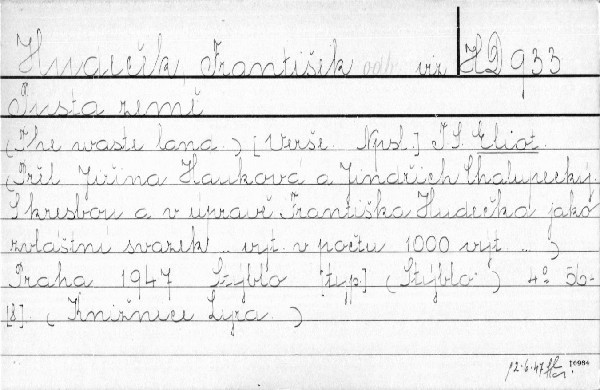 Hudeček, František odk. viz HD 933
Pustá země
(The waste land.) [Verše. Npsl.] T. S. Eliot.
(Přel. Jiřina Hauková a Jindřich Chalupecký.
S kresbou a v úpravě Františka Hudečka jako
zvláštní svazek .. vyt. v počtu 1000 výt. .. )
Praha 1947 Stýblo [typ.] (Stýblo.) 4° 56-
[8]. (Knižnice Lyra. )
12.6.47
10984